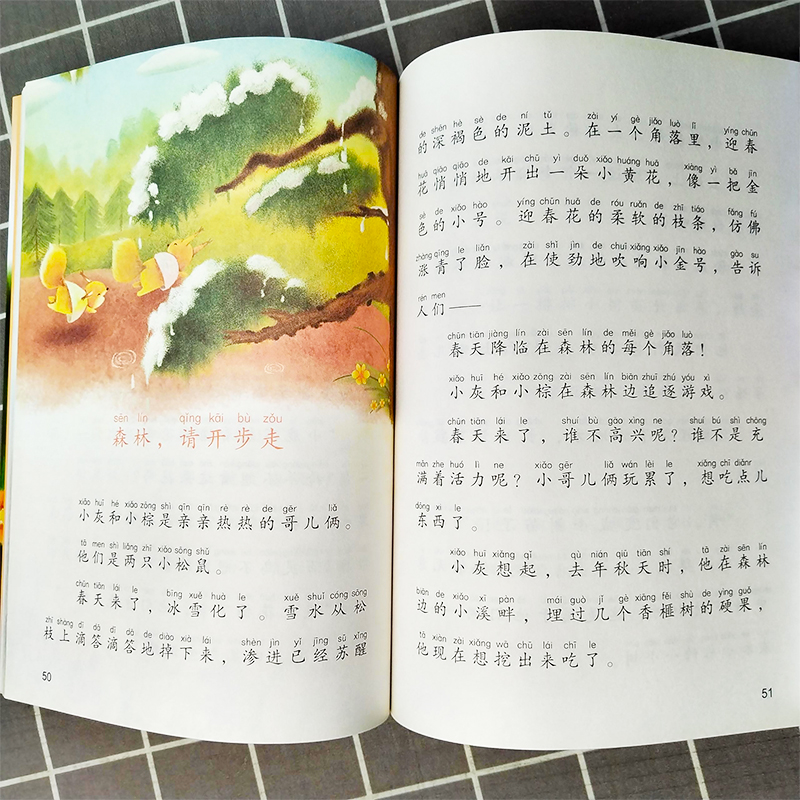 sēn lín qǐng kāi bù zǒu
森林，请开步走
xiǎo huī hé xiǎo zōng shì qīn qīn rè rè de gēr liǎ
小灰和小棕是亲亲热热的哥儿俩。
tā men shì liǎng zhī xiǎo sōng shǔ
他们是两只小松鼠。
chūn tiān lái le bīng xuě huà le xuě shuǐ cóng sōng
春天来了，冰雪化了。雪水从松
zhī shàng dī dā dī dā de diào xià lái shèn jìn yǐ jīng sū xǐng
枝上滴答滴答地掉下来，渗进已经苏醒
50
de shēn hè sè de ní tǔ zài yí gè jiǎo luò lǐ yíng chūn
的深褐色的泥土。在一个角落里，迎春
huā qiāo qiāo de kāi chū yì duǒ xiǎo huáng huā xiàng yì bǎ jīn
花悄悄地开出一朵小黄花，像一把金
sè de xiǎo hào yíng chūn huā de róu ruǎn de zhī tiáo fǎng fú
色的小号。迎春花的柔软的枝条，仿佛
zhàng qīng le liǎn zài shǐ jìn de chuī xiǎng xiǎo jīn hào gào su
涨青了脸，在使劲地吹响小金号，告诉
rén men
人们——
chūn tiān jiàng lín zài sēn lín de měi gè jiǎo luò
春天降临在森林的每个角落！
xiǎo huī hé xiǎo zōng zài sēn lín biān zhuī zhú yóu xì
小灰和小棕在森林边追逐游戏。
chūn tiān lái le shuí bù gāo xìng ne shuí bú shì chōng
春天来了，谁不高兴呢？谁不是充
mǎn zhe huó lì ne xiǎo gēr liǎ wán lèi le xiǎng chī diǎnr
满着活力呢？小哥儿俩玩累了，想吃点儿
dōng xi le
东西了。
xiǎo huī xiǎng qǐ qù nián qiū tiān shí tā zài sēn lín
小灰想起，去年秋天时，他在森林
biān de xiǎo xī pàn mái guò jǐ gè xiāng fěi shù de yìng guǒ
边的小溪畔，埋过几个香榧树的硬果，
tā xiàn zài xiǎng wā chū lái chī le
他现在想挖出来吃了。
51